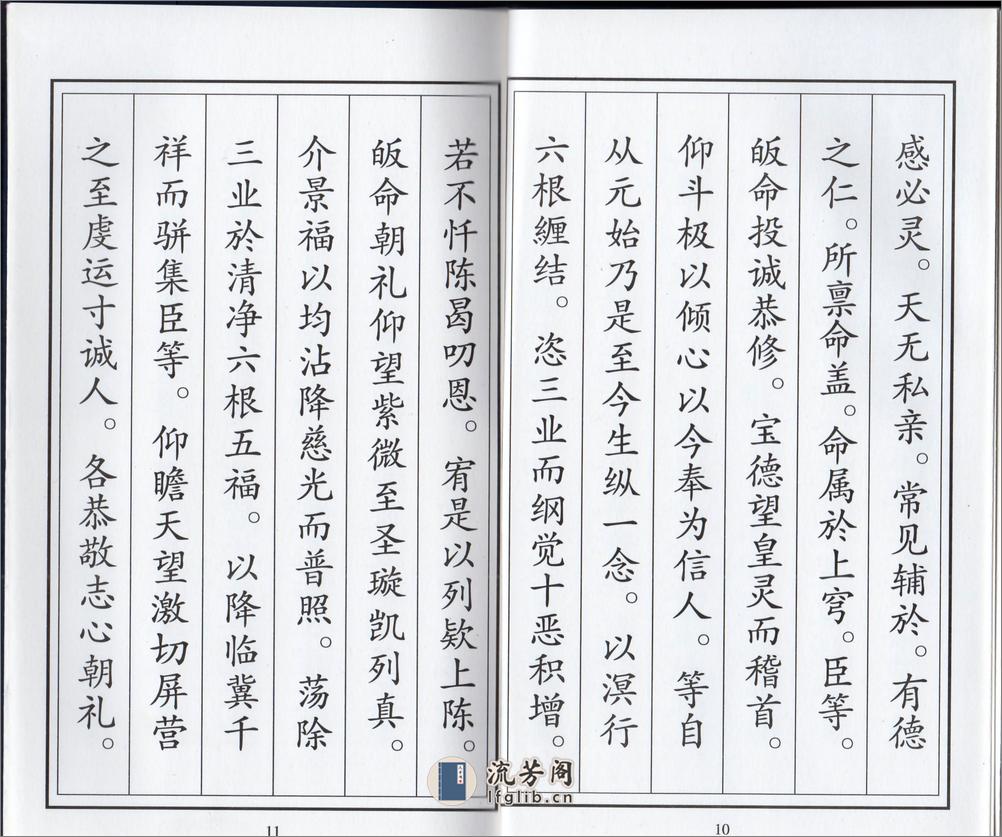 感必灵。天无私亲。常见辅於。有德
之仁。所禀命盖。命属於上穹。臣等。
皈命投诚恭修。宝德望皇灵而稽首。
仰斗极以倾心以今奉为信人。等自
从元始乃是至今生纵一念。以溟行
六根缠结。恣三业而纲觉十恶积增。
10
若不忏陈曷叨恩。宥是以列欵上陈。
皈命朝礼仰望紫微至圣璇凯列真。
介景福以均沾降慈光而普照。荡除
三业於清净六根五福。以降临冀千
祥而骈集臣等。仰瞻天望激切屏营
之至虔运寸诚人。各恭敬志心朝礼。
11
流芳阁
lfglib.cn